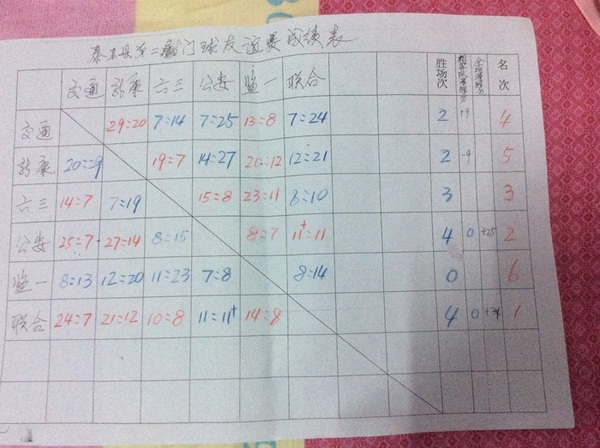 泰玉县第二届门球友谊赛成绩表
交通 新康 六三 公安 监一 联合 胜场次 名次
交通 29:20 7:14 7:25 13:8 7:24 2 +9 4
新康 20:29 19:7 14:27 20:12 12:21 2 -9 5
六三 14:7 7:19 15:8 23:11 8:10 3 3
公安 25:7 27:14 8:15 8:7 11+:11 4 0 +25 2
监一 8:13 12:20 11:23 7:8 8:14 0 6
联合 24:7 21:12 10:8 11:11+ 14:8 4 0 1